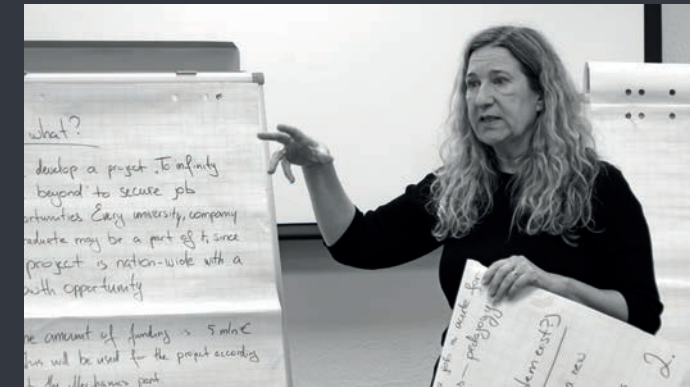 what?
develop a project "To infinity
beyond" to secure job
ortunities Every university, company
raduate may be a part of it, since
project is nation-wide with a
outh opportunity
he amount of funding is 5 mln €
his will be used for the project according
to the Mechanics part
job is acute for
s – pedagogy
lem exist?)
new
2.